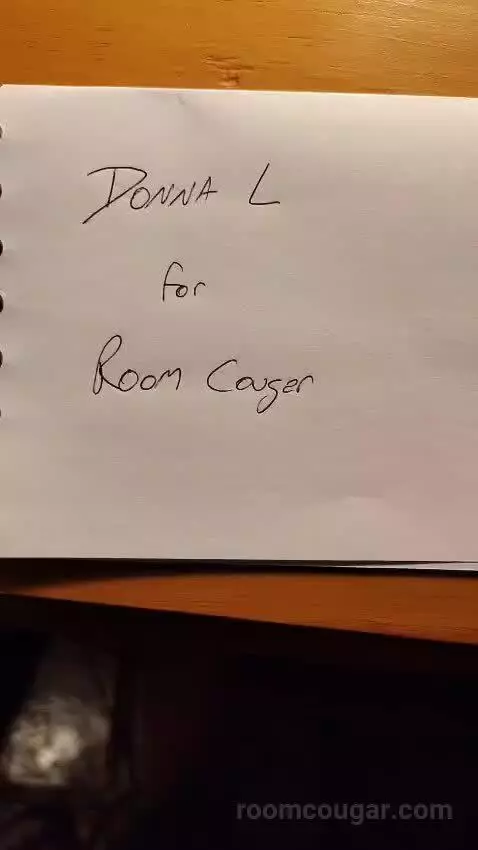 Donna L
for
Room Couger
roomcougar.com